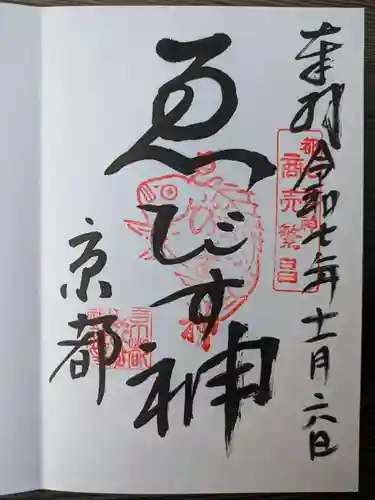 奉拝 令和七年十一月六日
商売繁昌
ゑびす神
京都